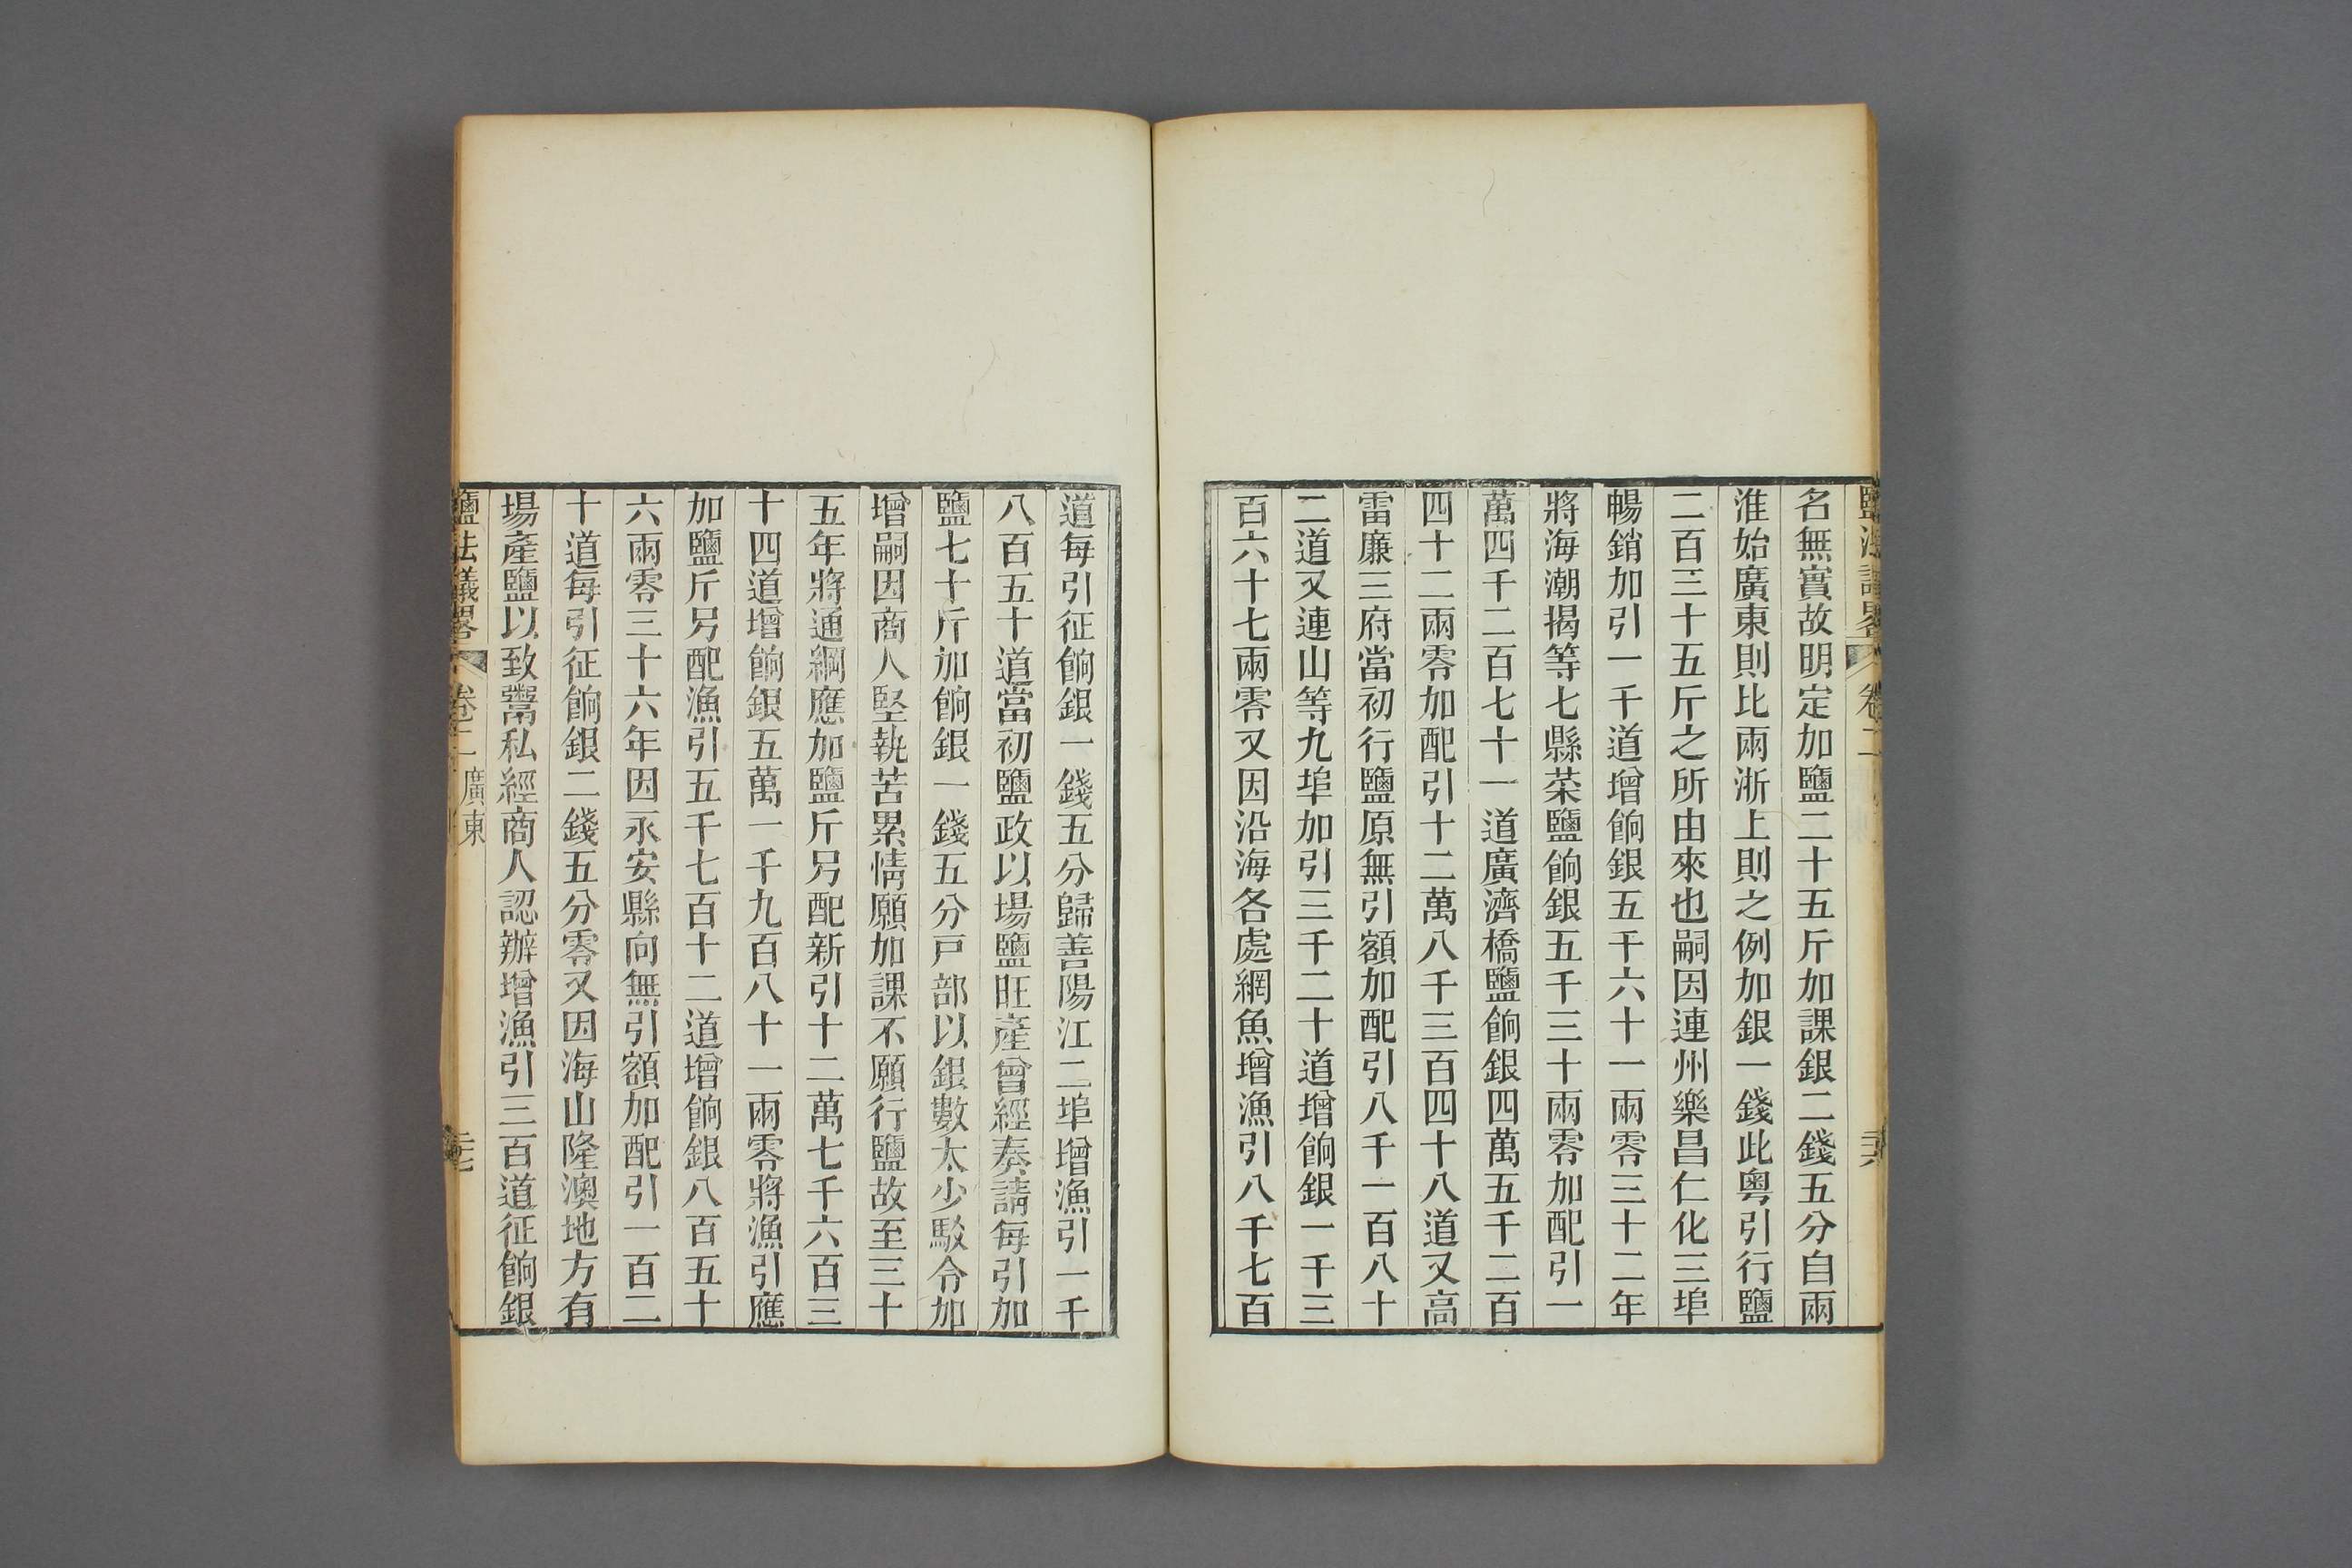 鹽法議畧 卷二 二十六
名無實故明定加鹽二十五斤加課銀二錢五分自兩
淮始廣東則比兩浙上則之例加銀一錢此粵引行鹽
二百三十五斤之所由來也嗣因連州樂昌仁化三埠
暢銷加引一千道增餉銀五千六十一兩零三十二年
將海潮揭等七縣茶鹽餉銀五千三十兩零加配引一
萬四千二百七十一道廣濟橋鹽餉銀四萬五千二百
四十二兩零加配引十二萬八千三百四十八道又高
雷廉三府當初行鹽原無引額加配引八千一百八十
二道又連山等九埠加引三千二十道增餉銀一千三
百六十七兩零又因沿海各處網魚增漁引八千七百
道每引征餉銀一錢五分歸善陽江二埠增漁引一千
八百五十道當初鹽政以場鹽旺產曾經奏請每引加
鹽七十斤加餉銀一錢五分戸部以銀數太少駁令加
增嗣因商人堅執苦累情願加課不願行鹽故至三十
五年將通綱應加鹽斤另配新引十二萬七千六百三
十四道增餉銀五萬一千九百八十一兩零將漁引應
加鹽斤另配漁引五千七百十二道增餉銀八百五十
六兩零三十六年因永安縣向無引額加配引一百二
十道每引征餉銀二錢五分零又因海山隆澳地方有
場產鹽以致鬻私經商人認辦增漁引三百道征餉銀
鹽法議畧 卷二 廣東 二十七